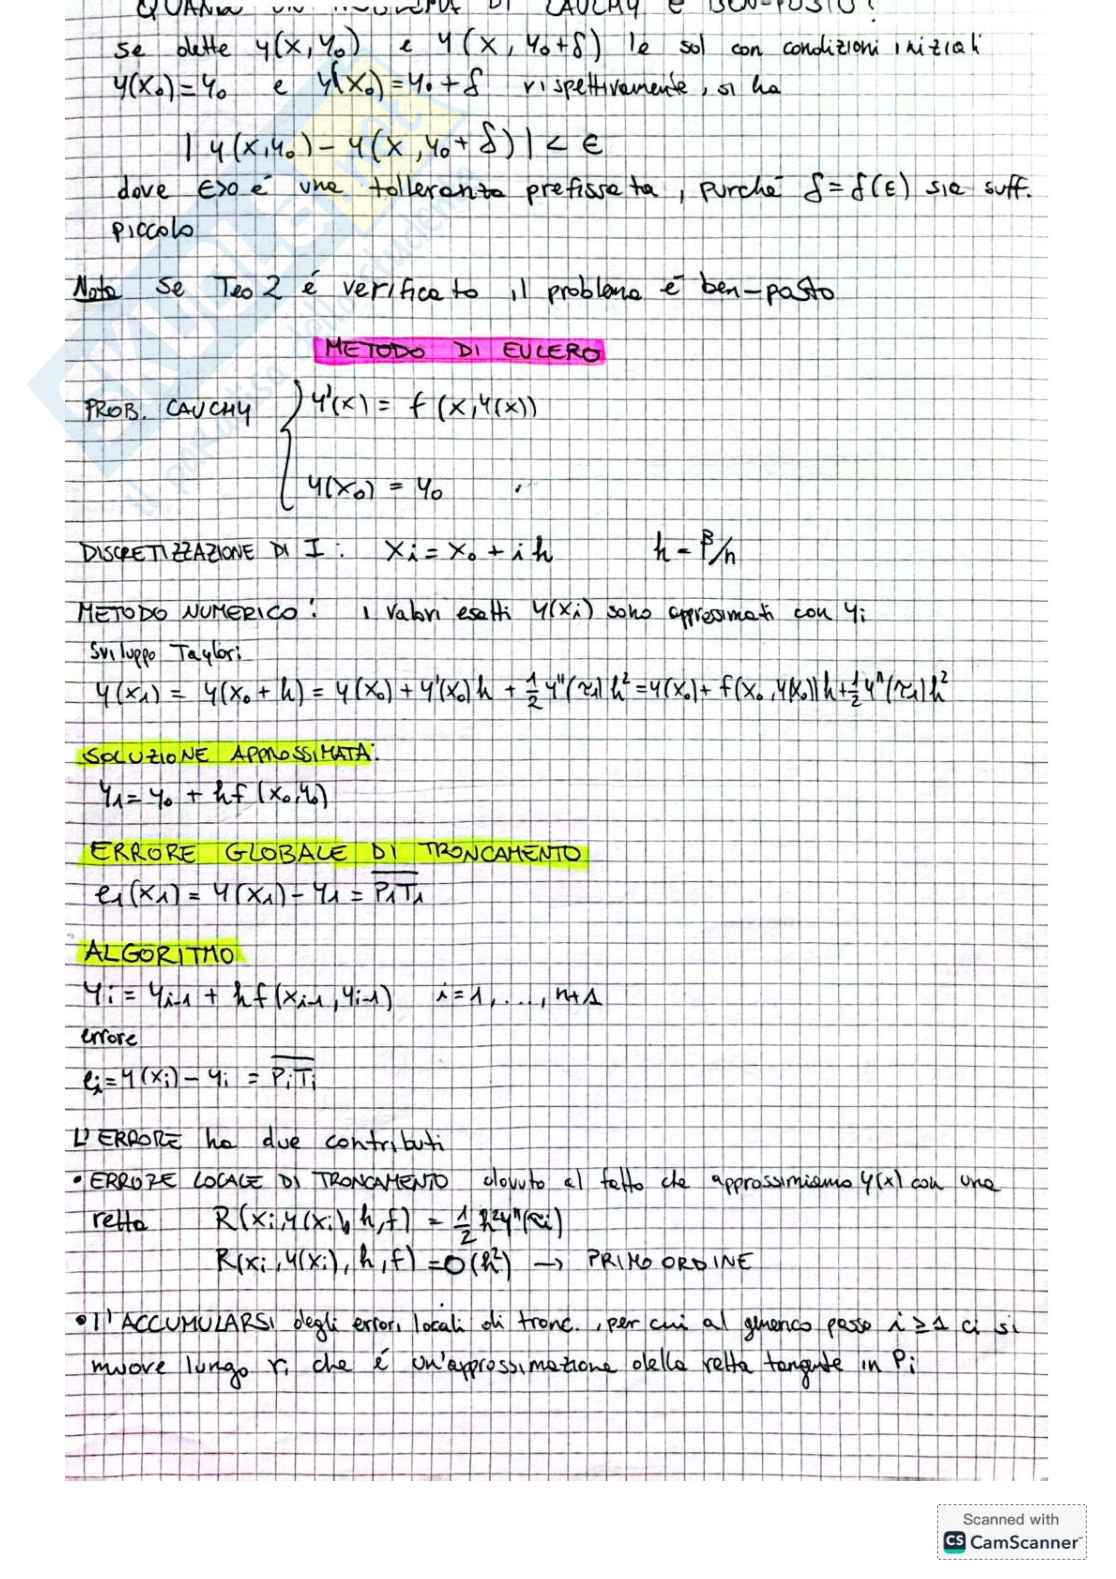 QUANDO UN PROBLEMA DI CAUCHY È BEN-POSTO?
se dette y(x,y₀) e y(x, y₀+δ) le sol con condizioni iniziali
y(x₀)=y₀ e y(x₀)=y₀+δ rispettivamente, si ha
|y(x,y₀)-y(x,y₀+δ)|<ε
dove ε>0 è una tolleranza prefissata, purché δ=δ(ε) sia suff.
piccolo
Nota Se Teo 2 é verificato il problema è ben-posto
METODO DI EULERO
PROB. CAUCHY { y'(x) = f(x,y(x))
y(x₀) = y₀
DISCRETIZZAZIONE DI I: xi = x₀ + ih h = β/n
METODO NUMERICO: i valori esatti y(xi) sono approssimati con yi
Sviluppo Taylor:
y(x₁) = y(x₀+h) = y(x₀) + y'(x₀)h + ½ y''(τ₁)h² = y(x₀) + f(x₀,y(x₀))h + ½ y''(τ₁)h²
SOLUZIONE APPROSSIMATA:
y₁ = y₀ + hf(x₀,y₀)
ERRORE GLOBALE DI TRONCAMENTO
e₁(x₁) = y(x₁) - y₁ = P₁T₁
ALGORITMO
yi = yi-1 + hf(xi-1,yi-1) i=1,...,n+1
errore
ei = y(xi) - yi = PiTi
L'ERRORE ha due contributi
• ERRORE LOCALE DI TRONCAMENTO dovuto al fatto che approssimiamo y(x) con una
retta R(xi,y(xi),h,f) = ½ h²y''(τi)
R(xi,y(xi),h,f) = O(h²) → PRIMO ORDINE
• l'ACCUMULARSI degli errori locali di tronc., per cui al generico passo i≥1 ci si
muove lungo ri che é un'approssimazione della retta tangente in Pi
Scanned with
CS CamScanner